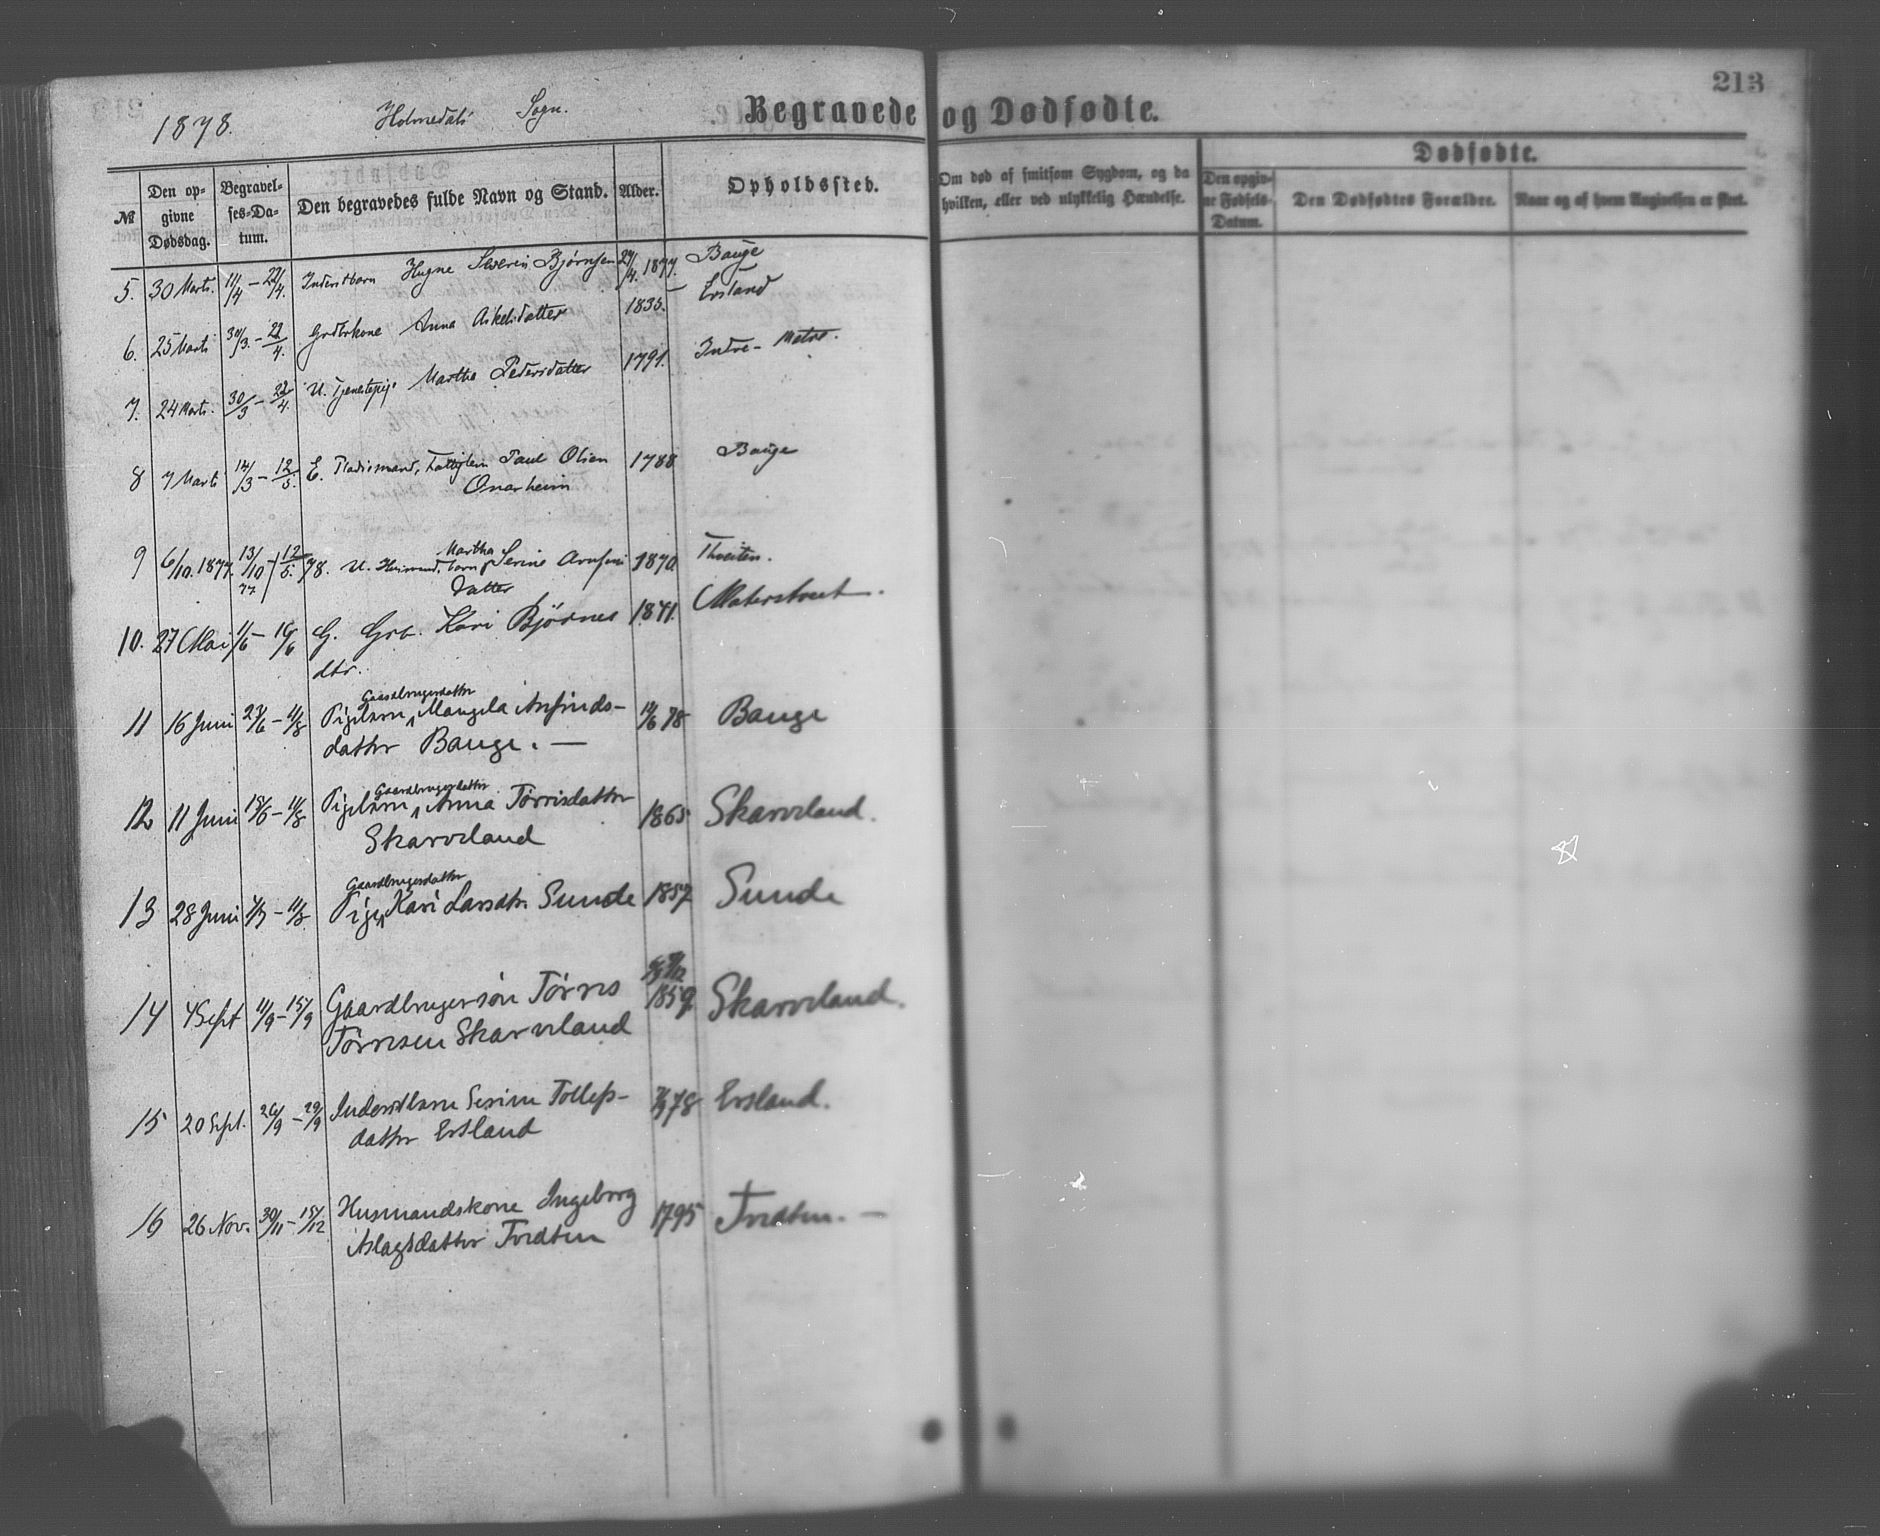 213
1878. Holmedals Sogn. Begravede og Dødfødte.
№ Den opgivne Dødsdag. Begravelses-Datum. Den begravedes fulde Navn og Stand. Alder. Opholdssted. Om død af smitsom Sygdom, og da hvilken, eller ved ulykkelig Hændelse. Dødfødte. Den opgivne Fødsels-Datum. Den Dødfødtes Forældre. Naar og af hvem Angivelsen er skeet.
5. 30 Marts. 11/4 – 22/4. Inderstbarn Hugne Severin Bjørnsen 24/4. 1877. Bauge
6. 25 Marts 30/3. – 22/4. Grdbrkone Anna Askelsdatter 1835. – Ersland
7. 24 Marts. 30/3 – 22/4. U. Tjenestepig. Martha Pedersdatter 1791. Indre – Matre.
8 7 Marts 14/3 – 12/5. E. Pladsmand, Fattiglem Paul Olsen 1788 Bauge
Onarheim
9 6/10. 1877. 13/10 77 – 12/5. 78. U. Husmand. barn Martha Serine Arnfins 1870. Thveiten.
datter
10. 27 Mai 1/6 – 16/6 G. Grb. Kari Bjørnes 1841. Materstveit.
dtr.
11 16 Juni 23/6 – 11/8 Pigebarn, Gaardbrugerdatter Mangela Anfinds- 14/6 78 Bauge
datter Bauge. —
12 11 Juni 18/6 – 11/8 Pigebarn, Gaardbrugerdatter Anna Tørrisdatter 1865 Skarveland.
Skarveland
13 28 Juni 7/7 – 11/8. Pige, Gaardbrugerdatter Kari Larsdtr. Sunde 1857 Sunde
14 4 Sept 11/9 – 15/9 Gaardbrugersøn Tørres 1859 Skarveland.
Tørresen Skarveland
15 20 Sept. 26/9 – 29/9 Inderstbarn Serine Tollefs- 78 Ersland.
datter Ersland
16 26 Nov. 30/11 – 15/12 Husmandskone Ingeborg 1795 Tveten. —
Aslagsdatter Tveten